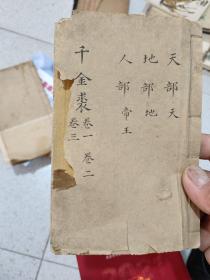 天部天
地部地
人部帝王
千金裘卷一 卷二
卷三